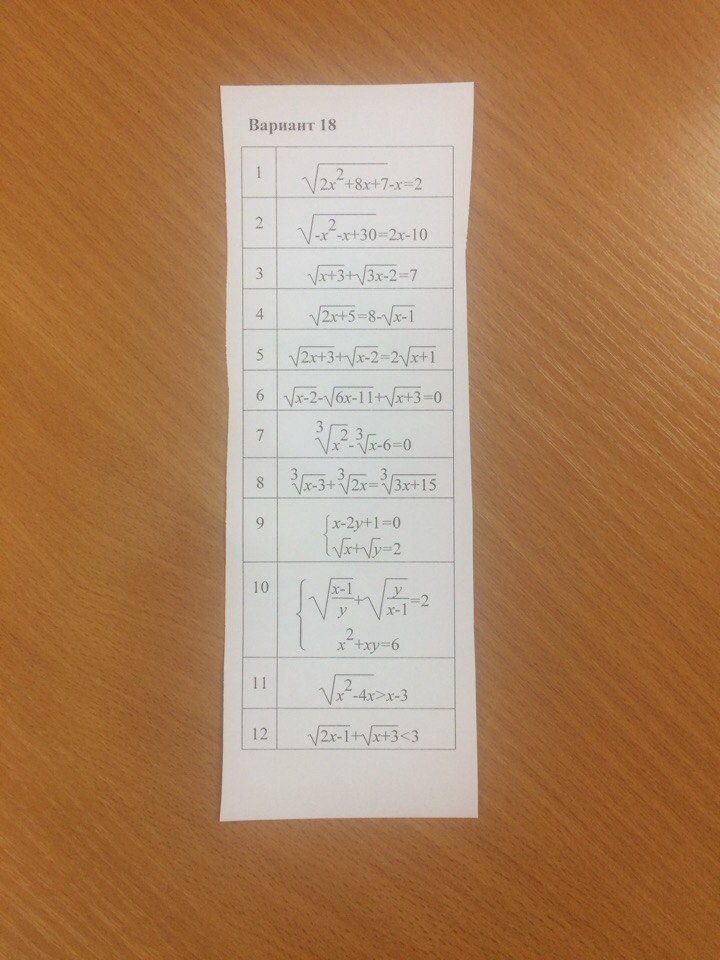 Вариант 18
1 √(2x²+8x+7)-x=2
2 √(-x²-x+30)=2x-10
3 √(x+3)+√(3x-2)=7
4 √(2x+5)=8-√(x-1)
5 √(2x+3)+√(x-2)=2√(x+1)
6 √(x-2)-√(6x-11)+√(x+3)=0
7 ∛(x²)-∛x-6=0
8 ∛(x-3)+∛(2x)=∛(3x+15)
9 { x-2y+1=0
√x+√y=2
10 { √((x-1)/y)+√(y/(x-1))=2
x²+xy=6
11 √(x²-4x)>x-3
12 √(2x-1)+√(x+3)<3